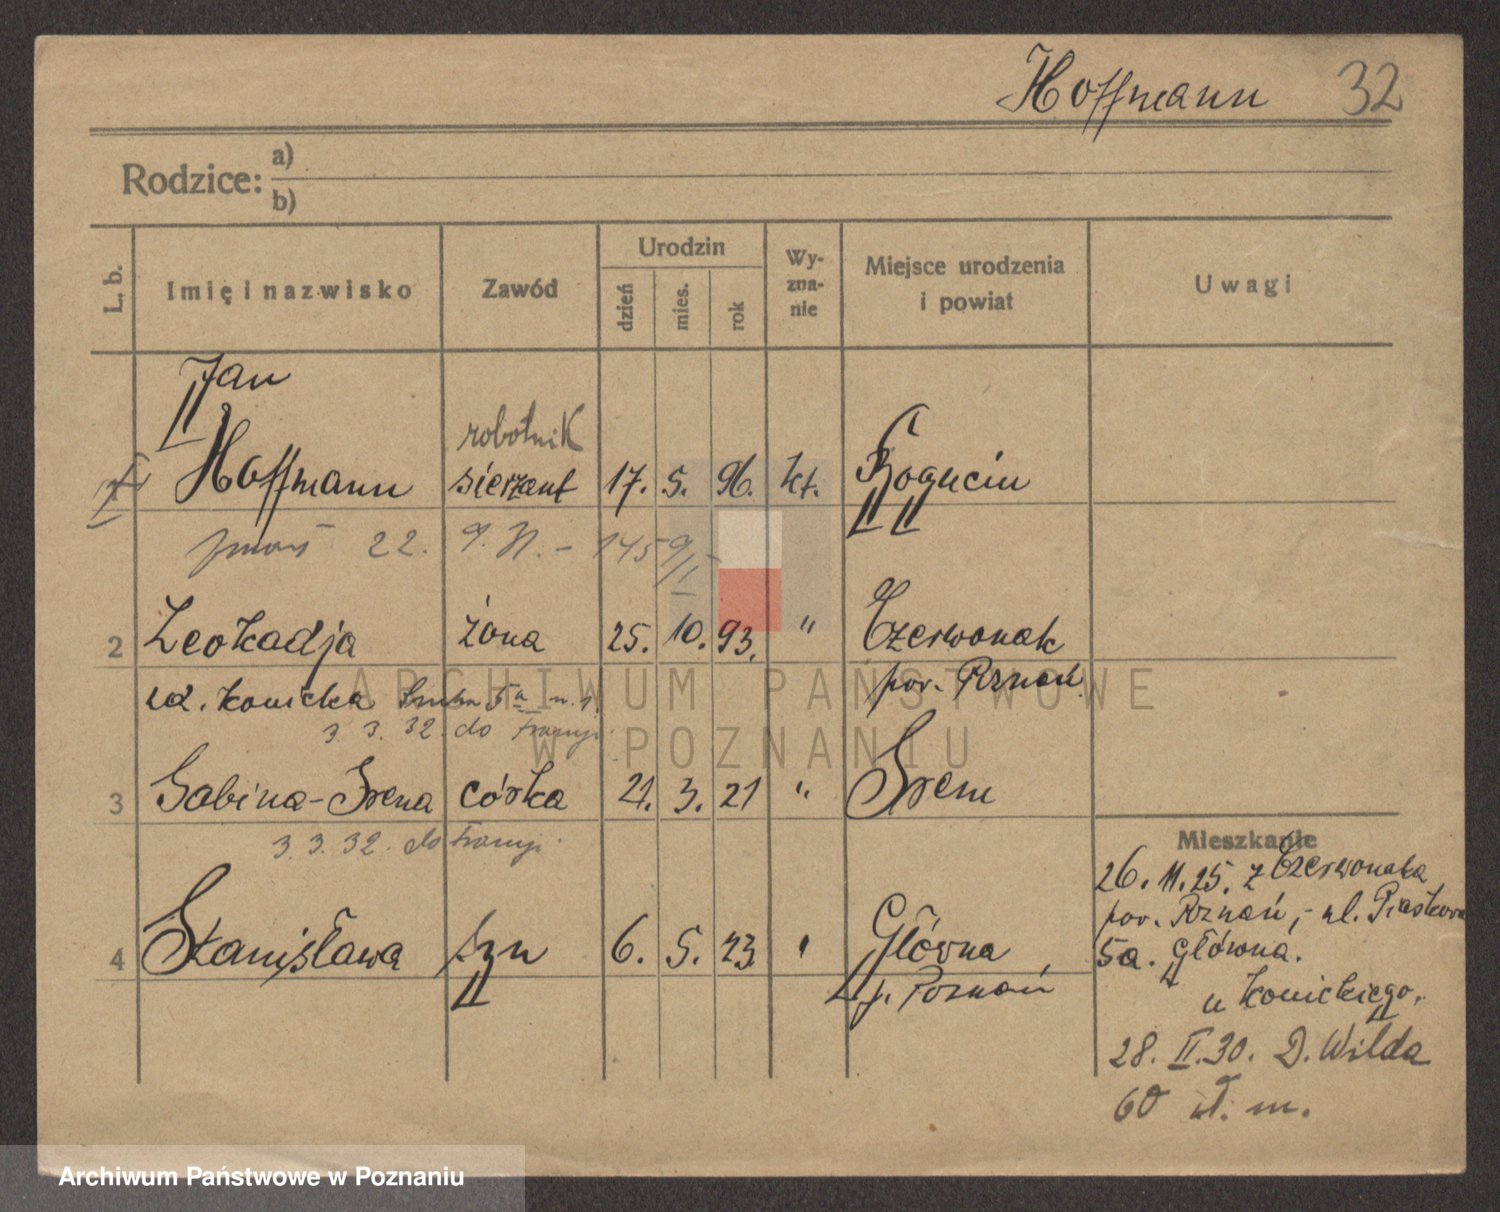 Hoffmann 32
Rodzice: a)
b)
L. b.
Imię i nazwisko
Zawód
Urodzin
dzień
mies.
rok
Wy-
zna-
nie
Miejsce urodzenia
i powiat
Uwagi
Jan
robotnik
Hoffmann sierżant 17. 5. 96. kt. Bogucin
22.
2 Leokadja żona 25. 10. 93. " Czerwonak
pow. Poznań
ur. Konicka
3. 3. 32. do Francji
3 Sabina-Irena córka 21. 3. 21 " Srem
3. 3. 32. do Francji
4 Stanisława syn 6. 5. 23. " Główna
p. Poznań
Mieszkanie
26. 11. 25. z Czerwonaka
pow. Poznań, ul. Piaskowa
5a. Główna.
u Konickiego.
28. II. 30. D. Wilda
60 wł. m.
ARCHIWUM PAŃSTWOWE
W POZNANIU
Archiwum Państwowe w Poznaniu